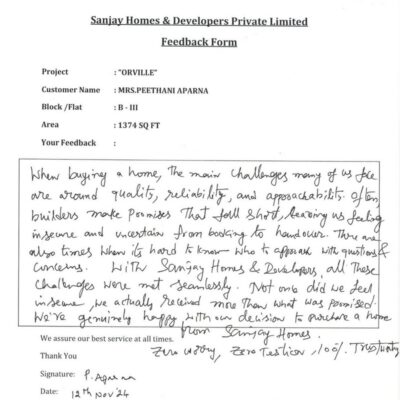 Sanjay Homes & Developers Private Limited
Feedback Form
Project : "ORVILLE"
Customer Name : MRS.PEETHANI APARNA
Block /Flat : B - III
Area : 1374 SQ FT
Your Feedback :
When buying a home, the main challenges many of us face
are around quality, reliability, and approachability. Often,
builders make promises that fall short, leaving us feeling
insecure and uncertain from booking to handover. There are
also times when its hard to know who to approach with questions &
concerns. With Sanjay Homes & Developers, all these
challenges were met seamlessly. Not once did we feel
insecure, we actually received more than what was promised.
We're genuinely happy with our decision to purchase a home
from Sanjay Homes.
We assure our best service at all times.
Zero worry, Zero 100%.
Thank You
Signature: P. Aparna
Date: 12th Nov'24